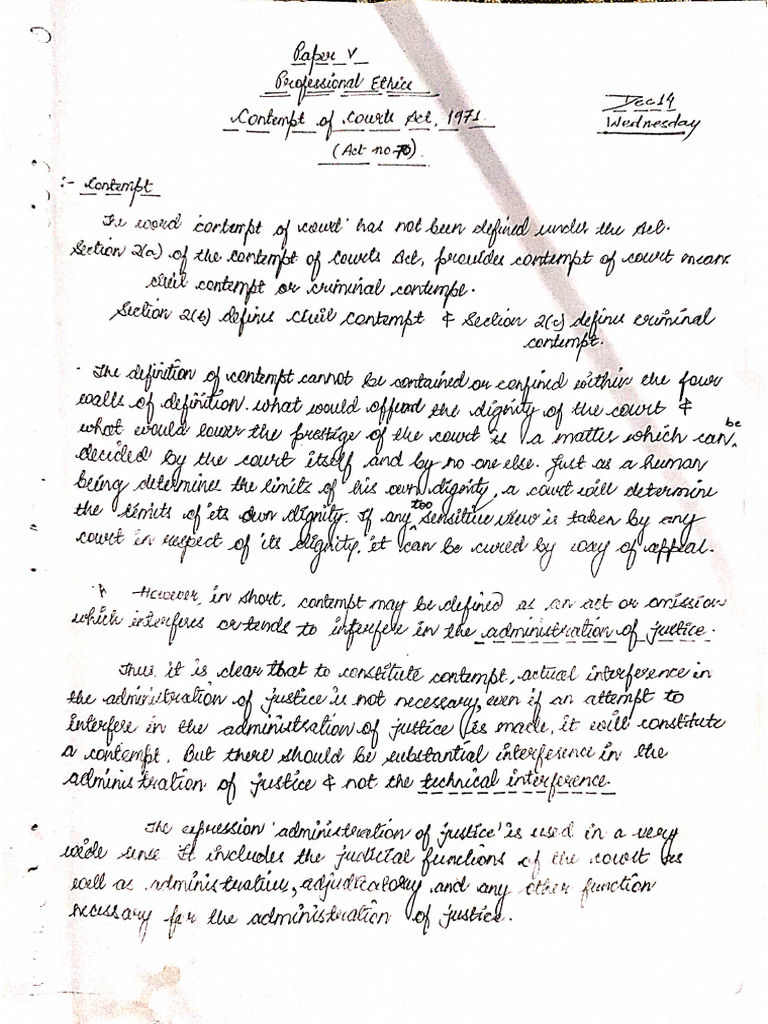 Paper V
Professional Ethics
Contempt of Courts Act, 1971.
(Act no 70).
Dec 14
Wednesday
:- Contempt
The word 'contempt of court' has not been defined under the Act.
Section 2(a) of the contempt of courts Act, provides contempt of court means
civil contempt or criminal contempt.
Section 2(b) defines civil contempt & Section 2(c) defines criminal
contempt.
The definition of contempt cannot be contained or confined within the four
walls of definition. what would offend the dignity of the court &
what would lower the prestige of the court is a matter which can be
decided by the court itself and by no one else. Just as a human
being determines the limits of his own dignity, a court will determine
the limits of its own dignity. If any too sensitive view is taken by any
court in respect of its dignity, it can be cured by way of appeal.
However, in short, contempt may be defined as an act or omission
which interferes or tends to interfere in the administration of justice.
Thus it is, clear that to constitute contempt, actual interference in
the administration of justice is not necessary, even if an attempt to
interfere in the administration of justice is made, it will constitute
a contempt. But there should be substantial interference in the
administration of justice & not the technical interference.
The expression 'administration of justice' is used in a very
wide sense It includes the judicial functions of the court as
well as administrative, adjudicatory and any other function
necessary for the administration of justice.